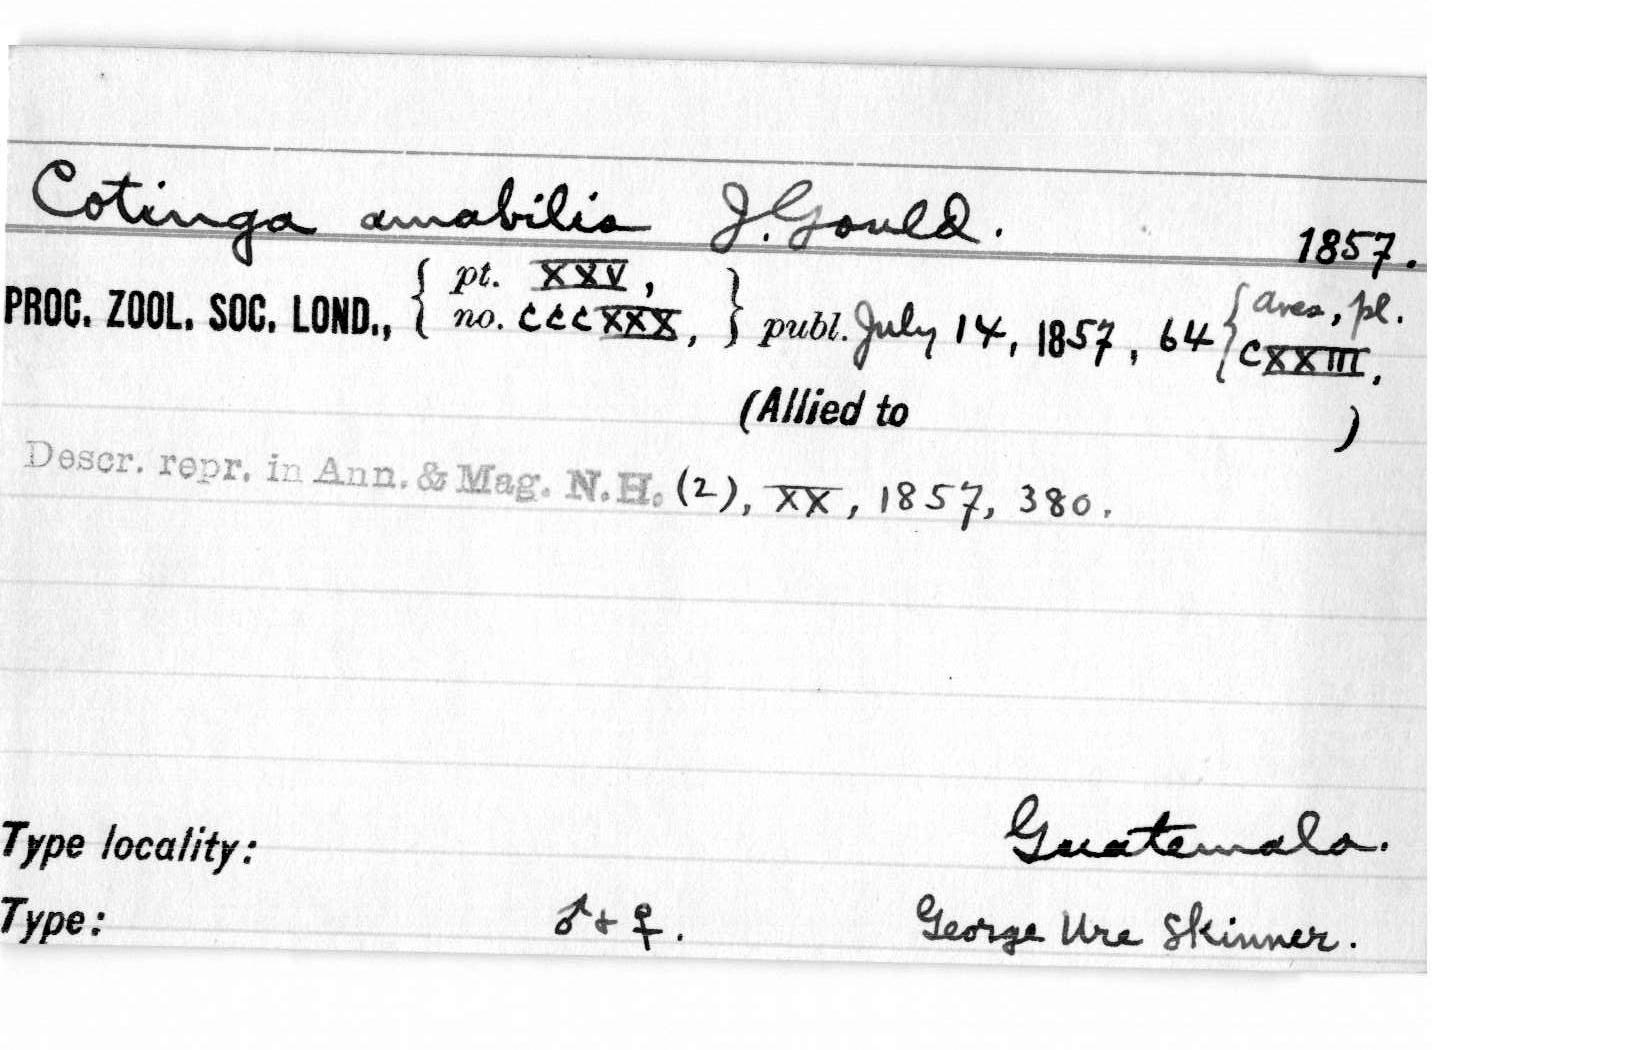 Cotinga amabilis J. Gould. 1857.
PROC. ZOOL. SOC. LOND., { pt. XXV, no. CCCXXX, } publ. July 14, 1857, 64 { Aves, pl. CXXIII.
(Allied to )
Descr. repr. in Ann. & Mag. N.H. (2), XX, 1857, 380.
Type locality: Guatemala.
Type: ♂ + ♀. George Ure Skinner.